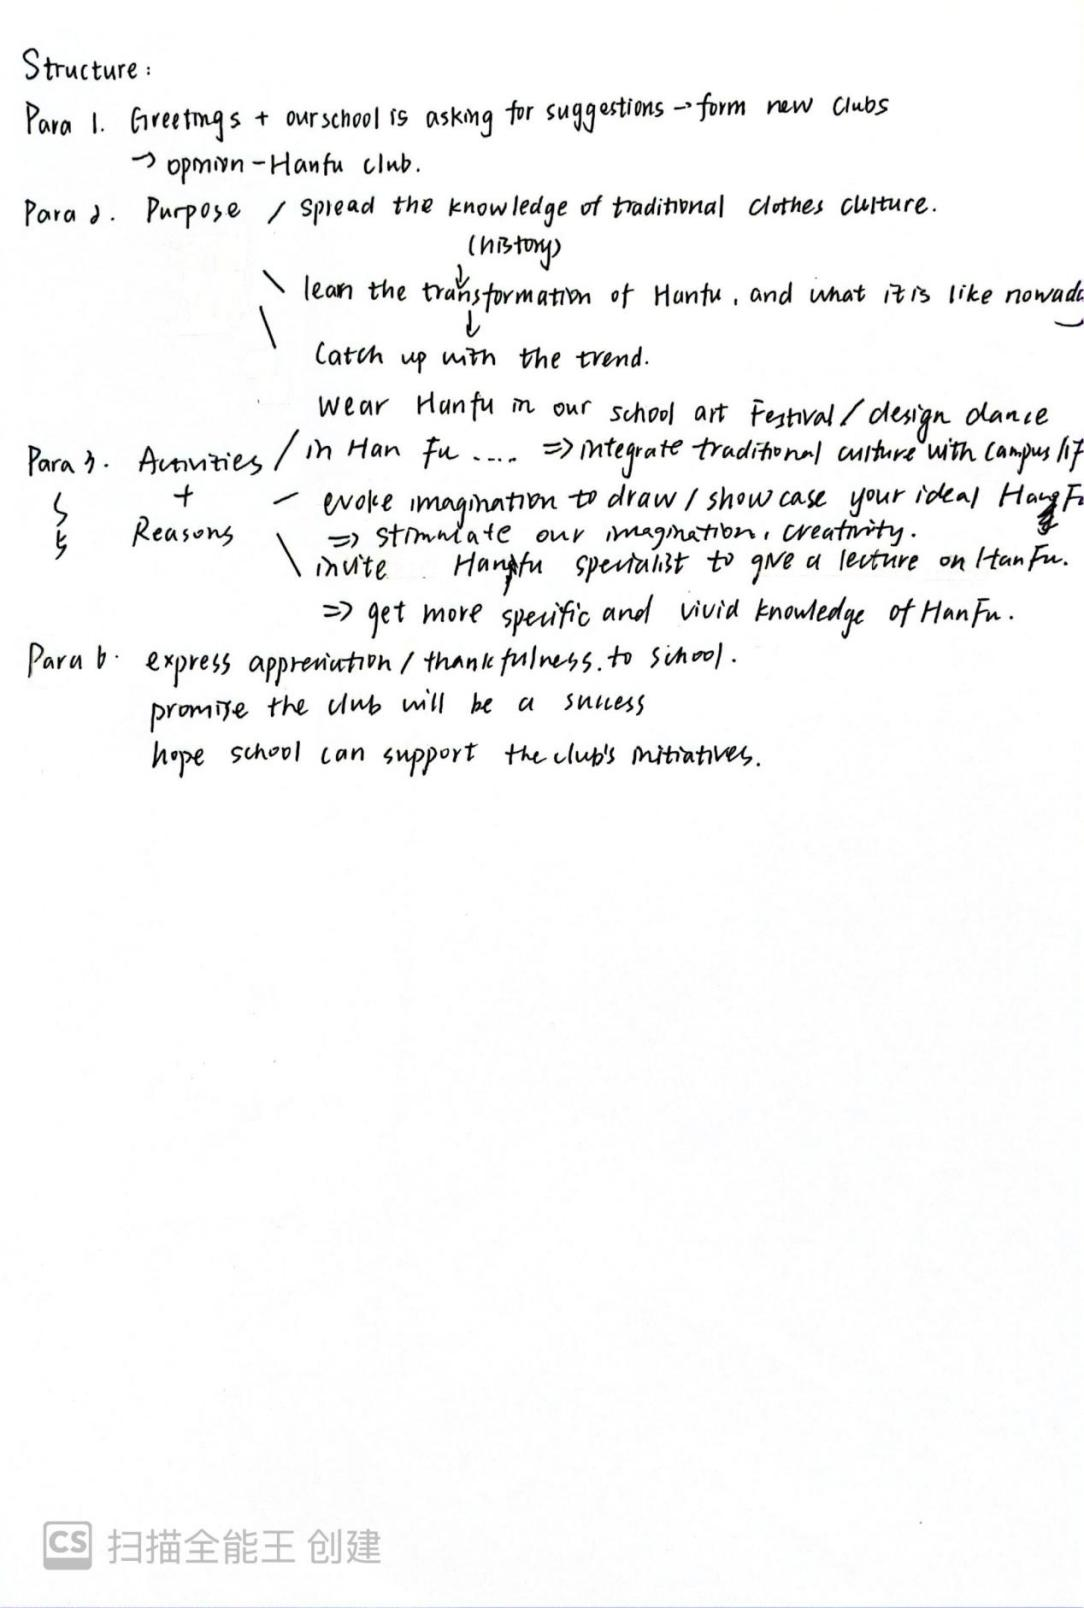 Structure:
Para 1. Greetings + our school is asking for suggestions → form new clubs
→ opinion - Hanfu club.
Para 2. Purpose / spread the knowledge of traditional clothes culture.
(history)
\ learn the transformation of Hanfu, and what it is like nowada
\ Catch up with the trend.
wear Hanfu in our school art Festival / design dance
Para 3. Activities / in Han Fu .... => integrate traditional culture with campus lif
+ – evoke imagination to draw / showcase your ideal Hang F
Reasons => stimulate our imagination, creativity.
5 \ invite Hanfu specialist to give a lecture on HanFu.
=> get more specific and vivid knowledge of HanFu.
Para 6. express appreciation / thankfulness. to school.
promise the club will be a success
hope school can support the club's initiatives.
CS 扫描全能王 创建